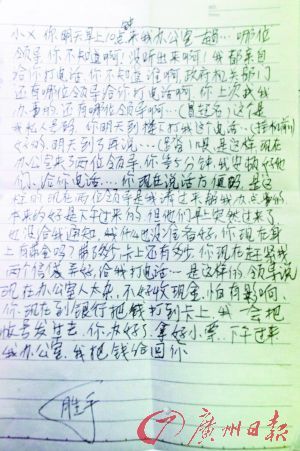 小X 你明天早上10点来我办公室一趟…哪位
领导 你不知道啊！没听出来啊！我都亲自
给你打电话，你不知道谁啊，政府机关部门
还有哪位领导给你打电话啊，你上次找我
办事的，还有哪位领导啊…（冒起名）这个是
我私人号码，你明天到楼下打我这个电话…（挂机前）
好的，明天到了再说…（另省）1喂是这样现在
办公室来了两位领导，你等5分钟，我安排好他
们，给你电话……你现在说话方便吗，是这
样的现在两位领导是我请过来帮我办点事的
本来约好是下午过来的，但他们早上突然过来了，
也没给我通知 我什么也没准备好，你现在身
上有现金吗？带了多少 卡上还有多少，你现在赶紧找
两个信封弄好，给我打电话…是这样的 领导说
现在办公室人太杂，不好收现金，怕有影响，
你现在到银行把钱打到卡上，我一会把
帐号发过去，你办好了，拿好小票…下午过来
我办公室，我把钱给回你
胜手
广州日报